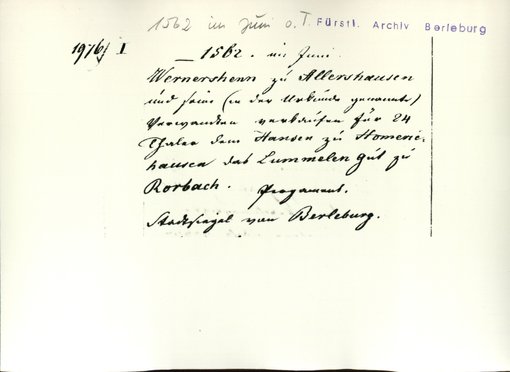 1562 im Juni o. T. Fürstl. Archiv Berleburg
1976/ I
— 1562. im Juni.
Wernershenn zu Allershausen
und seine (in der Urkunde genannte)
Verwandten verkaufen für 24
Thaler dem Hansen zu Homeric-
hausen das Lummelen Gut zu
Rorbach. Pergament.
Stadtsiegel von Berleburg.